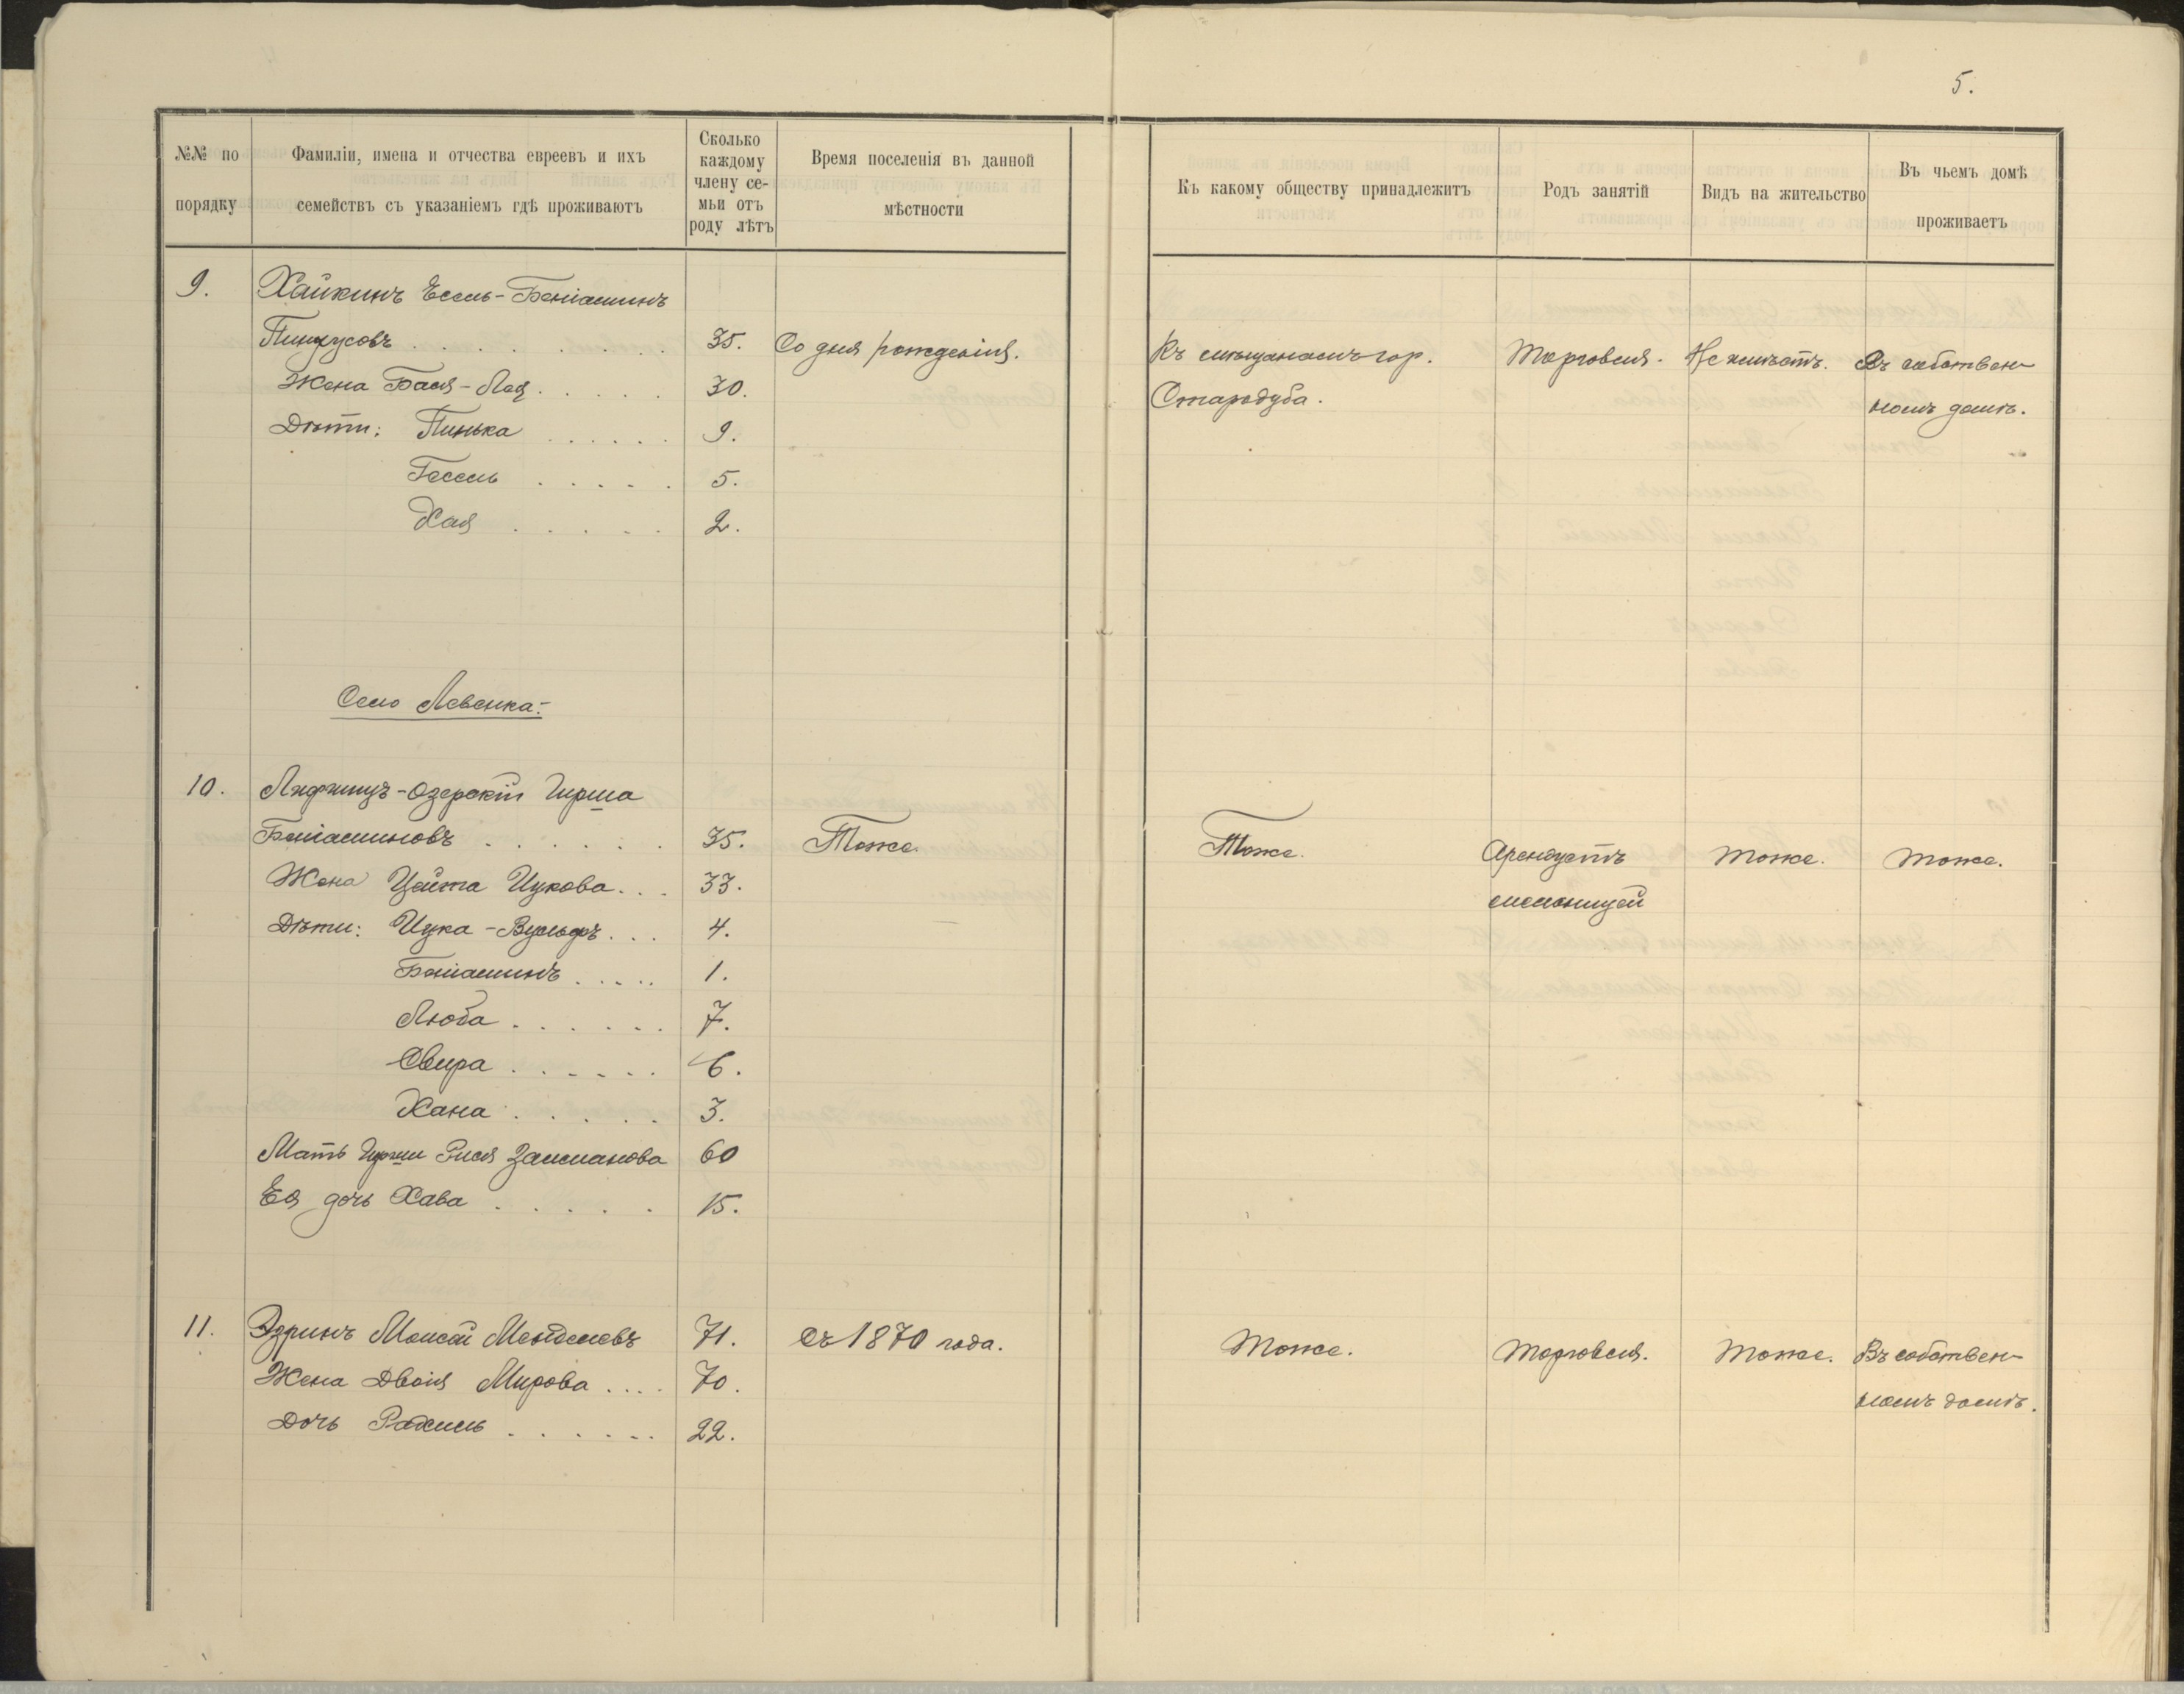 5.
№№ по порядку
Фамиліи, имена и отчества евреевъ и ихъ семействъ съ указаніемъ гдѣ проживаютъ
Сколько каждому члену се-мьи отъ роду лѣтъ
Время поселенія въ данной мѣстности
Къ какому обществу принадлежитъ
Родъ занятій
Видъ на жительство
Въ чьемъ домѣ проживаетъ
9. Хайкинъ Есель-Беніаминъ
Пинхусовъ 35. Со дня рожденія. Къ мѣщанамъ гор. Торговля. Не имѣетъ. Въ собствен-
Жена Бася-Лея 30. Стародуба. номъ домѣ.
Дѣти: Пинька 9.
Гесель 5.
Хая 2.
Село Левенка:
10. Лифшицъ-Озерскій Гирша
Беніаминовъ 35. Тоже. Тоже. Арендуетъ Тоже. Тоже.
Жена Цейта Ицкова 33. мельницей
Дѣти: Ицка-Вульфъ 4.
Беніаминъ 1.
Люба 7.
Свира 6.
Хана 3.
Мать Гирши Рися Залманова 60
Ея дочь Хава 15.
11. Эдринъ Моисей Менделевъ 71. Съ 1870 года. Тоже. Торговля. Тоже. Въ собствен-
Жена Двойя Мирова 70. номъ домѣ.
Дочь Рахиль 22.